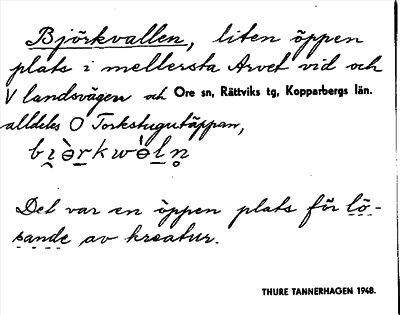 Björkvallen, liten öppen
plats i mellersta Arvet vid och
V landsvägen och Ore sn, Rättviks tg, Kopparbergs län.
alldeles O Torkstugutäppan,
bɪ̯ə̀rkwə̀ln̥
Det var en öppen plats för lö-
sande av kreatur.
THURE TANNERHAGEN 1948.